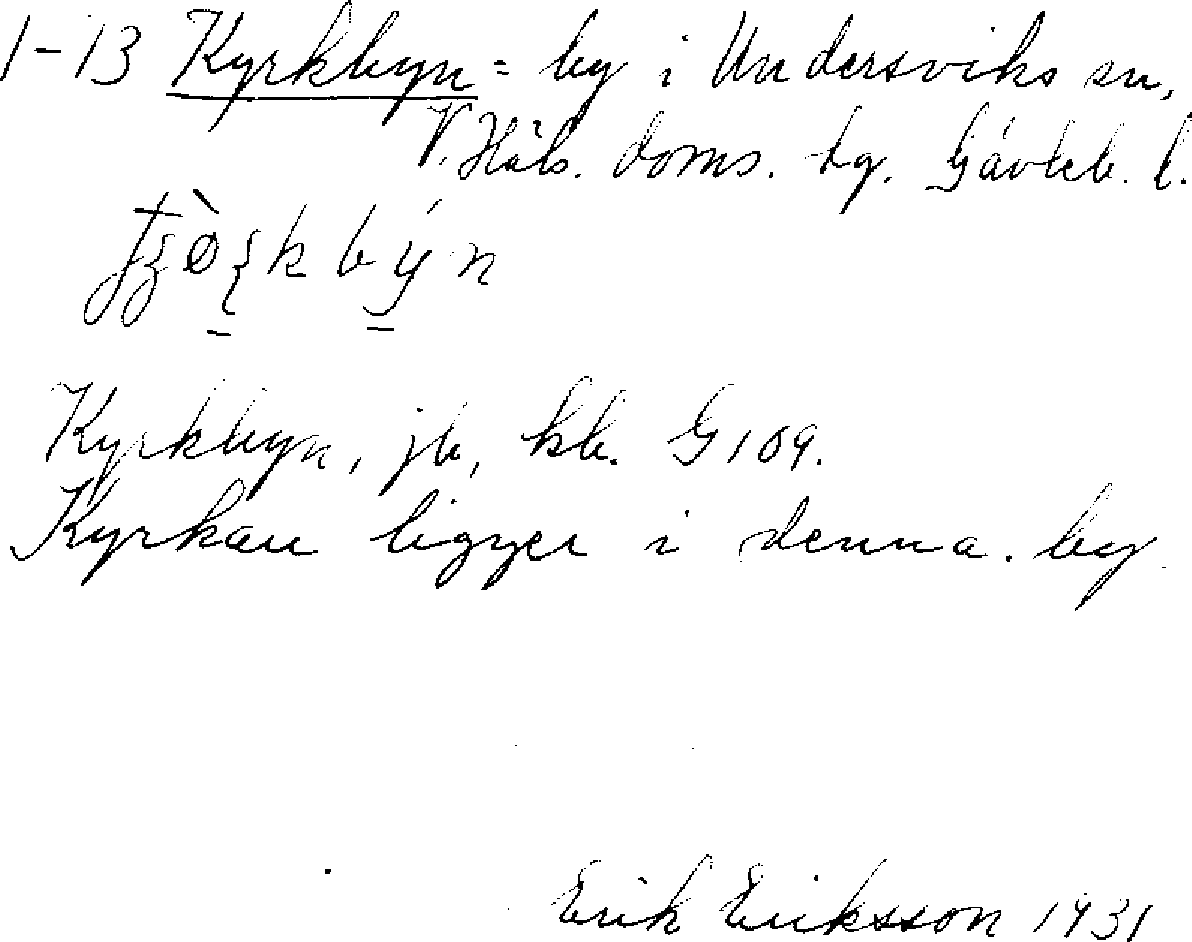 1-13 Kyrkbyn = by i Undersviks sn,
V. Häls. doms. tg. Gävleb. l.
Kyrkbyn, jb, kb. G 109.
Kyrkan ligger i denna by
Erik Eriksson 1931